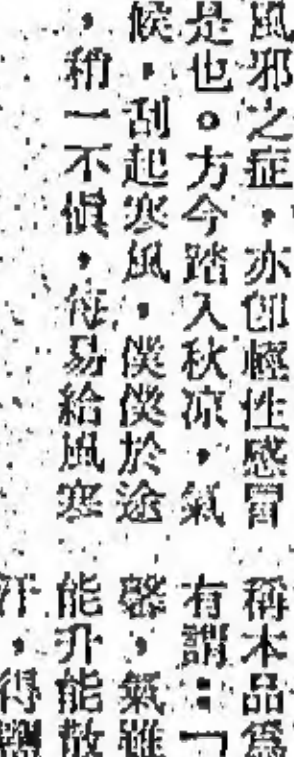 風邪之症，亦卽輕性感冒
是也。方今踏入秋凉，氣
候，刮起寒風，僕僕於途
，稍一不愼，每易給風寒
稱本品爲
有謂：「
馨，氣雖
能升能散
汗，得